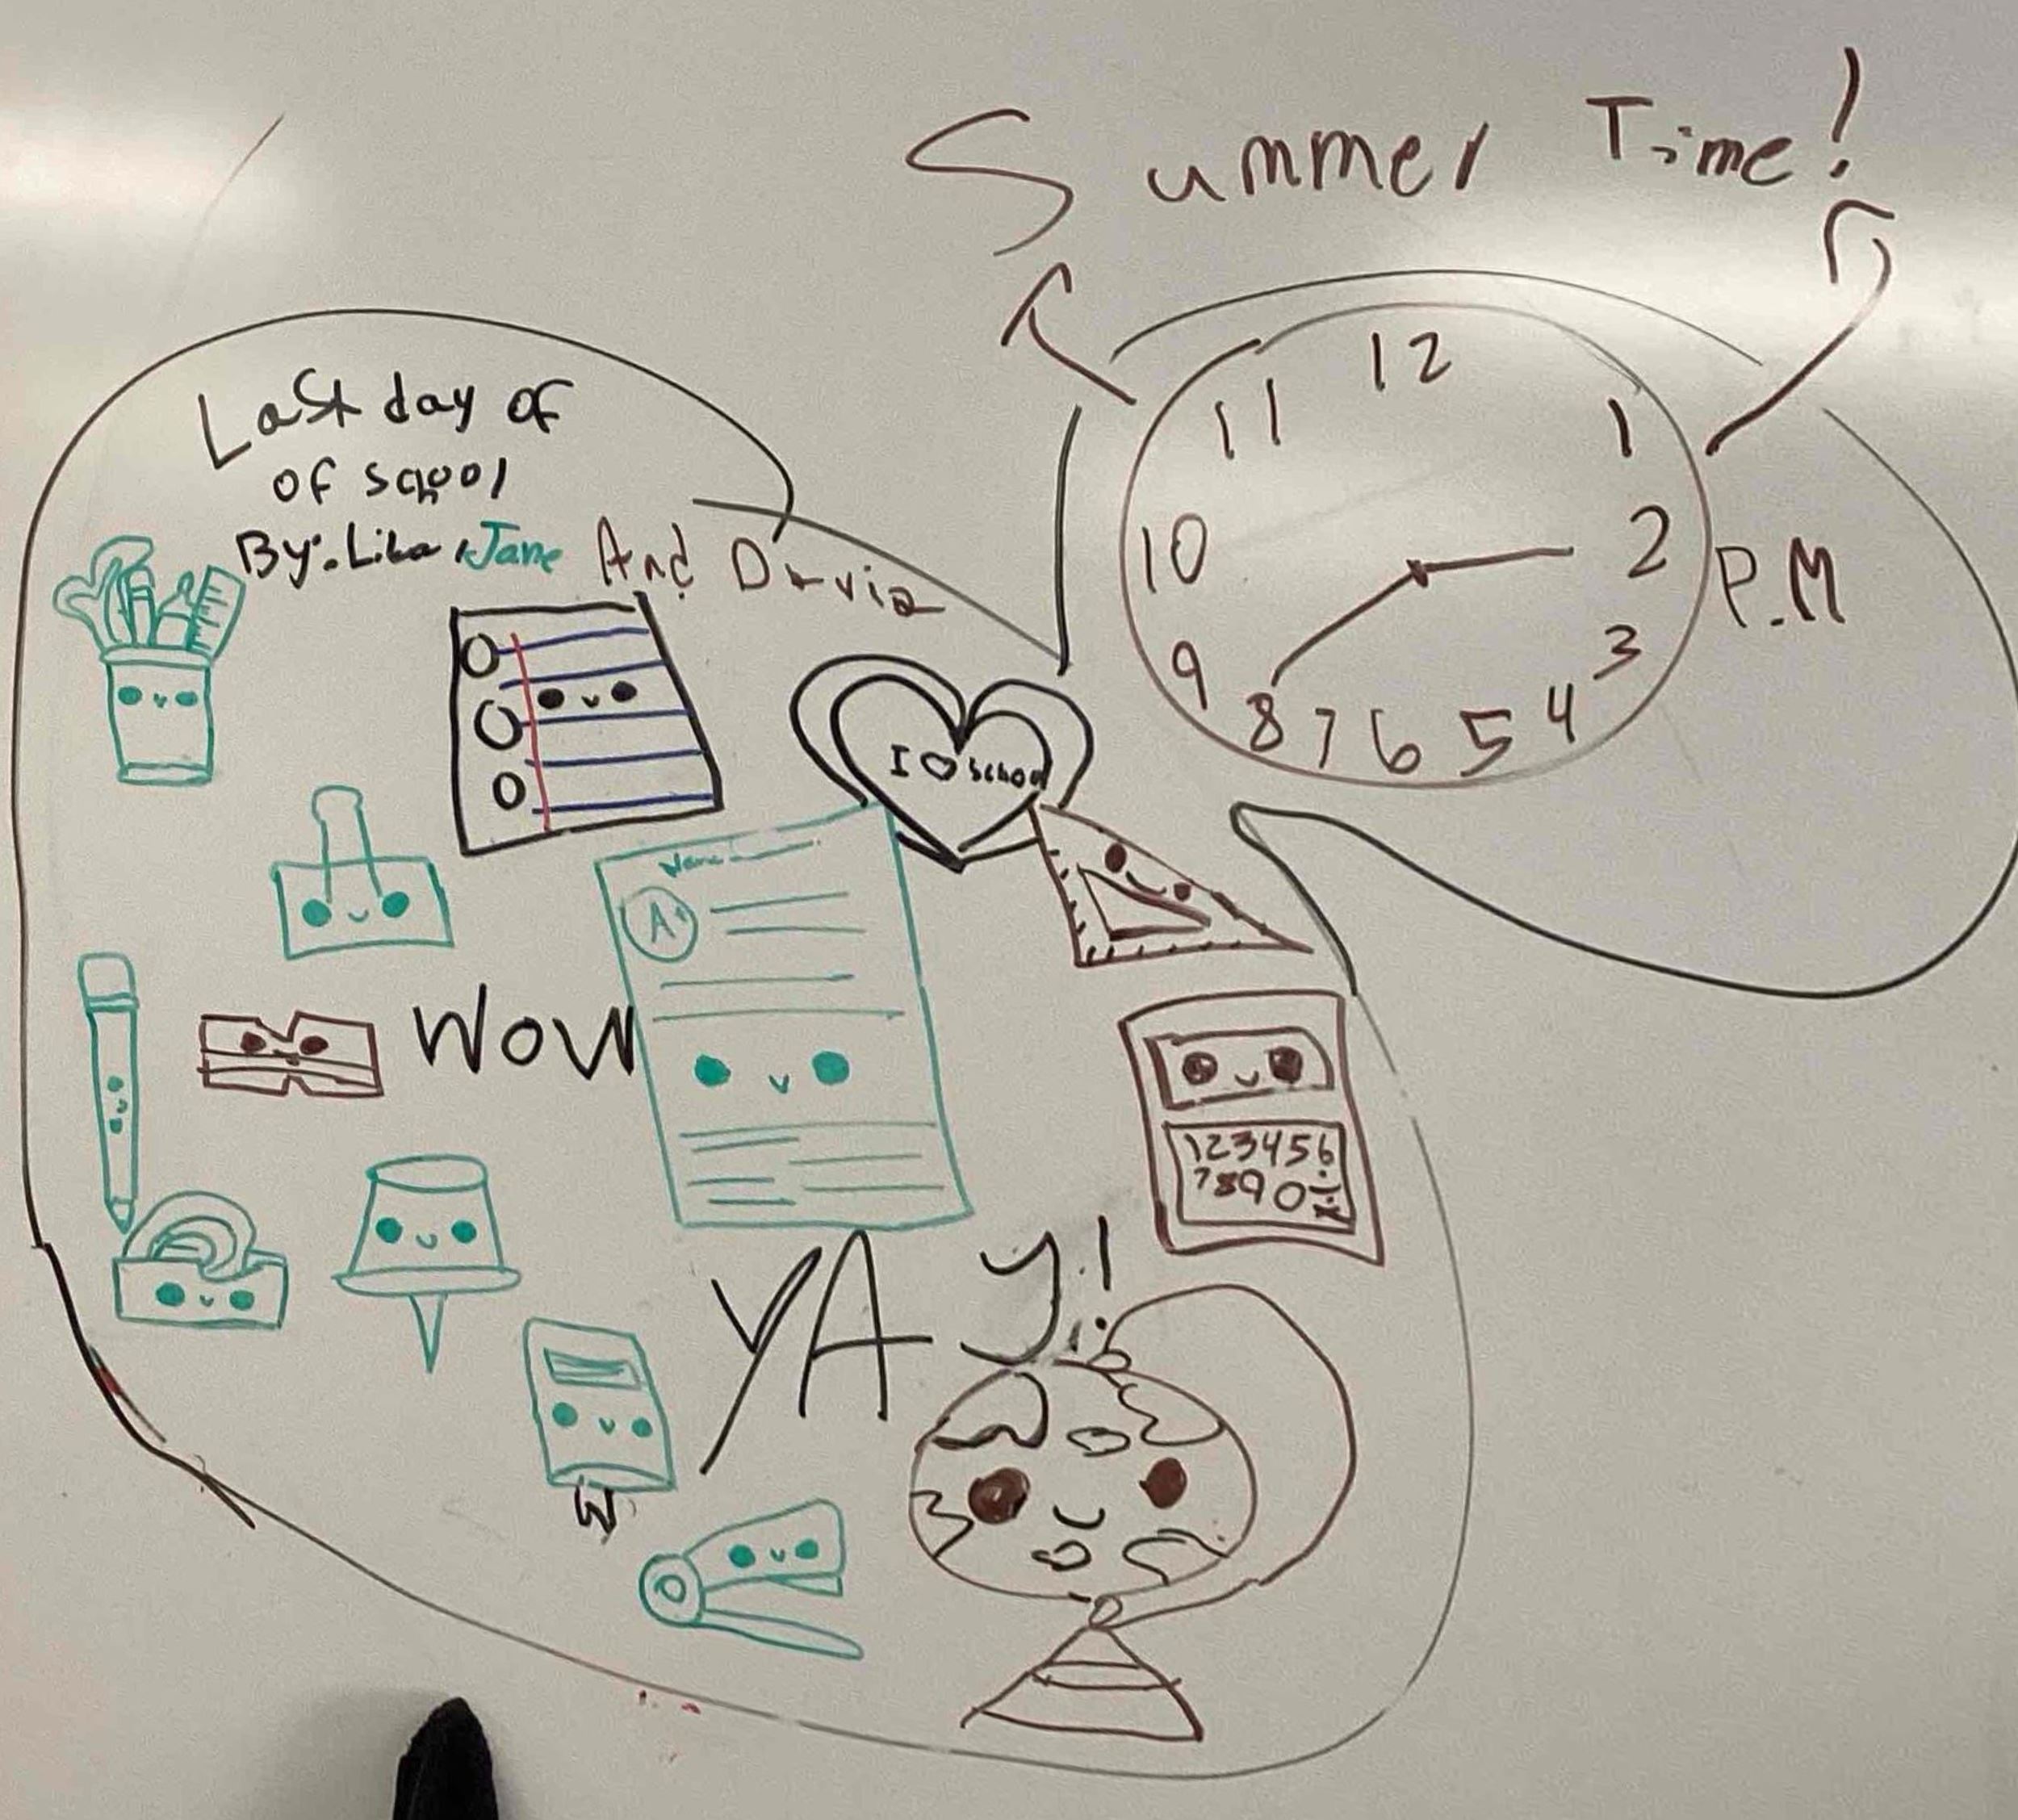 Summer Time!
12
11
1
10
2
P.M
9
3
8 7 6 5 4
Last day of
of school
By: Jane And
I ♡ school
Name
A+
WOW
123456
7890÷
YAY!
W